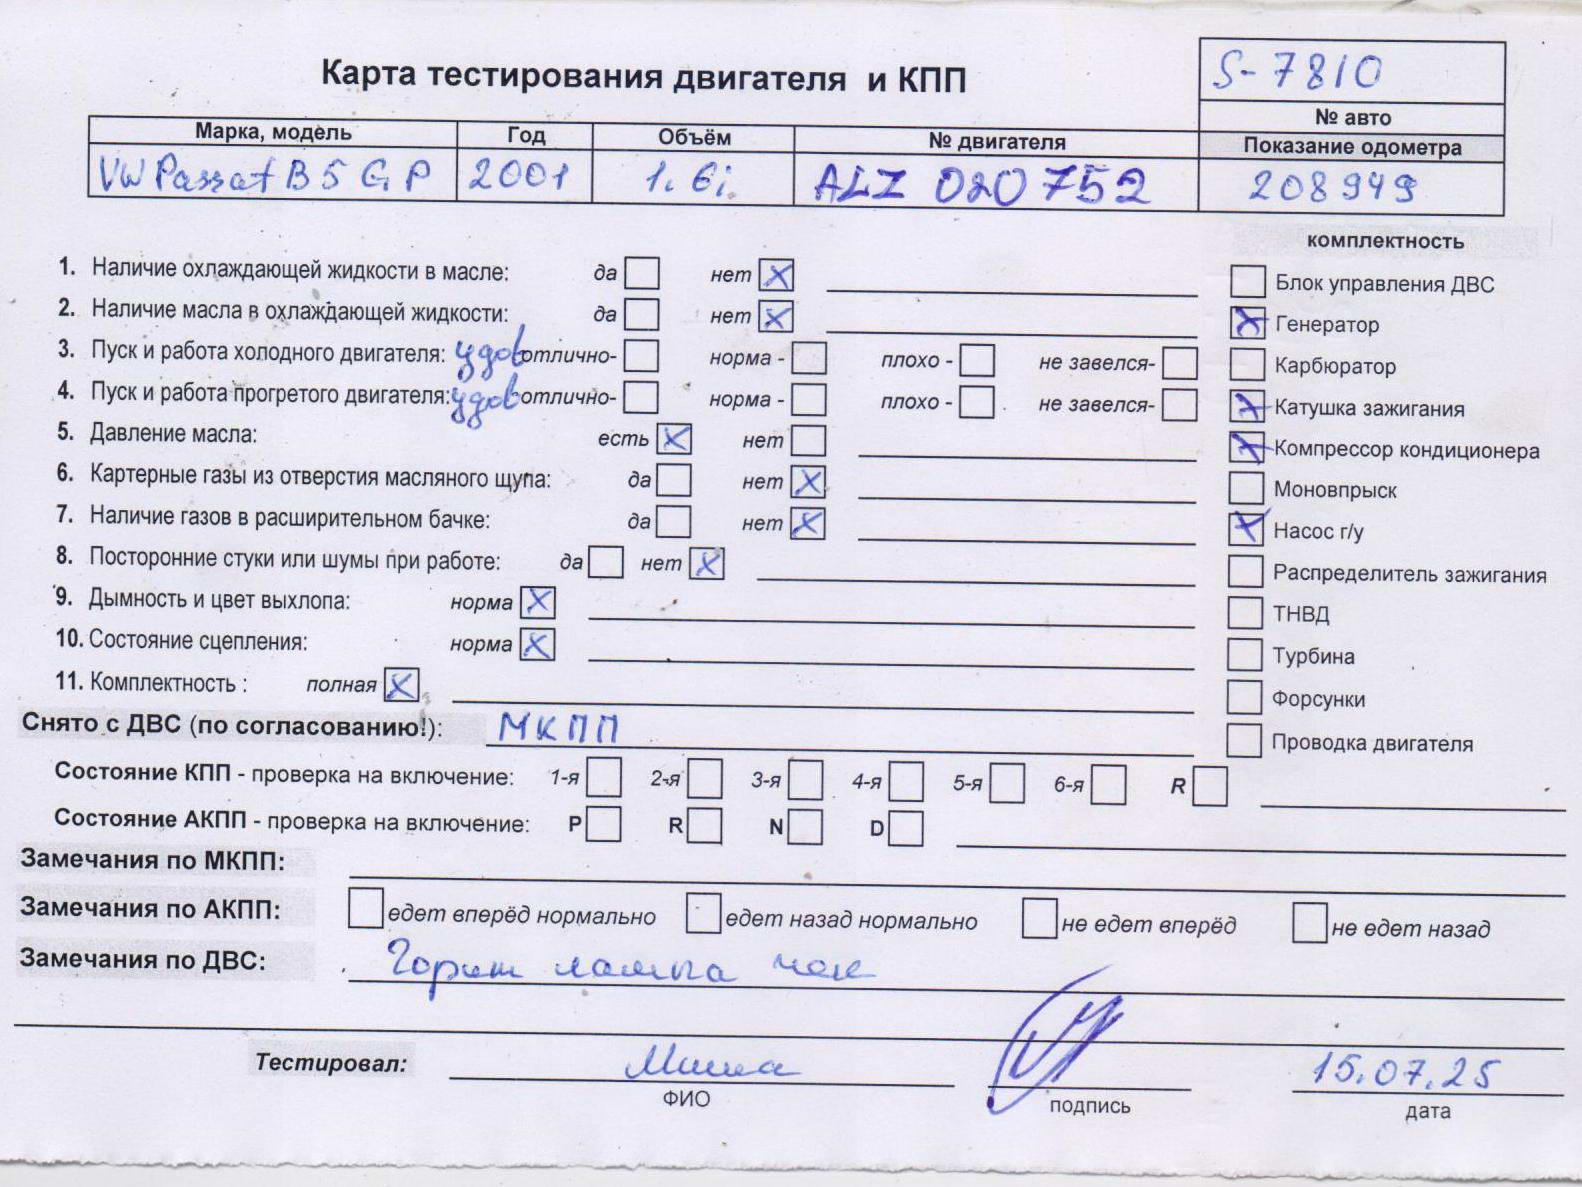 Карта тестирования двигателя и КПП
S-7810
№ авто
Марка, модель Год Объём № двигателя Показание одометра
VW Passat B5 GP 2001 1.6i ALZ 020752 208949
комплектность
1. Наличие охлаждающей жидкости в масле: да нет X
Блок управления ДВС
2. Наличие масла в охлаждающей жидкости: да нет X
X Генератор
3. Пуск и работа холодного двигателя: удов отлично- норма - плохо - не завелся-
Карбюратор
4. Пуск и работа прогретого двигателя: удов отлично- норма - плохо - не завелся-
X Катушка зажигания
5. Давление масла: есть X нет
X Компрессор кондиционера
6. Картерные газы из отверстия масляного щупа: да нет X
Моновпрыск
7. Наличие газов в расширительном бачке: да нет X
X Насос г/у
8. Посторонние стуки или шумы при работе: да нет X
Распределитель зажигания
9. Дымность и цвет выхлопа: норма X
ТНВД
10. Состояние сцепления: норма X
Турбина
11. Комплектность : полная X
Форсунки
Снято с ДВС (по согласованию!): МКПП
Проводка двигателя
Состояние КПП - проверка на включение: 1-я 2-я 3-я 4-я 5-я 6-я R
Состояние АКПП - проверка на включение: P R N D
Замечания по МКПП:
Замечания по АКПП: едет вперёд нормально едет назад нормально не едет вперёд не едет назад
Замечания по ДВС: Горит лампа чек
Тестировал: Миша 15.07.25
ФИО подпись дата